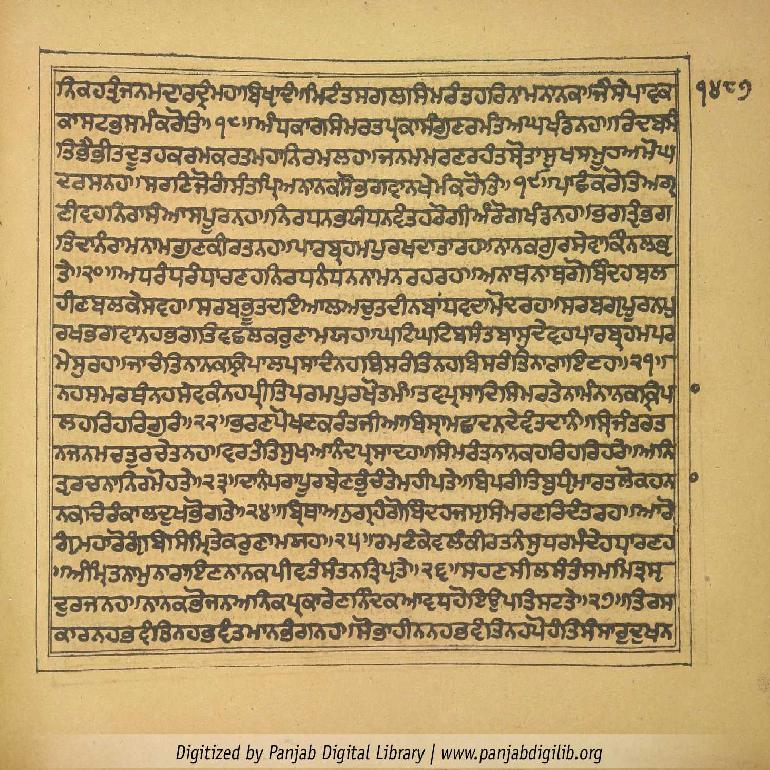 ਨਿਕਹਤੵੰਜਨਮਦਾਰਿਦ੍ਰੰਮਹਾਬਿਖੵਾਦੰ॥ਮਿਟੰਤਸਗਲਸਿਮਰੰਤਹਰਿਨਾਮਨਾਨਕਜੈਸੇਪਾਵਕ ੧੪੮੭
ਕਾਸਟਭਸਮੰਕਰੋਤਿ॥੧੮॥ਅੰਧਕਾਰਸਿਮਰਤਪ੍ਰਕਾਸੰਗੁਣਰਮੰਤਿਅਘਖੰਡਨਹ॥ਰਿਦਬਸੰ
ਤਿਭੈਭੀਤਦੂਤਹਕਰਮਕਰਤਮਹਾਨਿਰਮਲਹ॥ਜਨਮਮਰਣਰਹੰਤਸ੍ਰੋਤਾਸੁਖਸਮੂਹਅਮੋਘ
ਦਰਸਨਹ॥ਸਰਣਿਜੋਗੰਸੰਤਪ੍ਰਿਅਨਾਨਕਸੋਭਗਵਾਨਖੇਮੰਕਰੋਤਿ॥੧੯॥ਪਾਛੰਕਰੋਤਿਅਗ੍ਰ
ਣੀਵਹਨਿਰਾਸੰਆਸਪੂਰਨਹ॥ਨਿਰਧਨਭਯੰਧਨਵੰਤਹਰੋਗੀਅੰਰੋਗਖੰਡਨਹ॥ਭਗਤੵੰਭਗ
ਤਿਦਾਨੰਰਾਮਨਾਮਗੁਣਕੀਰਤਨਹ॥ਪਾਰਬ੍ਰਹਮਪੁਰਖਦਾਤਾਰਹ॥ਨਾਨਕਗੁਰਸੇਵਾਕਿੰਨਲਭੵ
ਤੇ॥੨੦॥ਅਧਰੰਧਰੰਧਾਰਣਹਨਿਰਧਨੰਧਨਨਾਮਨਰਹਰਹ॥ਅਨਾਥਨਾਥਗੋਬਿੰਦਹਬਲ
ਹੀਣਬਲਕੇਸਵਹ॥ਸਰਬਭੂਤਦਯਾਲਅਚੁਤਦੀਨਬਾਂਧਵਦਾਮੋਦਰਹ॥ਸਰਬਗੵਪੂਰਨਪੁ
ਰਖਭਗਵਾਨਹਭਗਤਿਵਛਲਕਰੁਣਾਮਯਹ॥ਘਟਿਘਟਿਬਸੰਤਬਾਸੁਦੇਵਹਪਾਰਬ੍ਰਹਮਪਰ
ਮੇਸੁਰਹ॥ਜਾਚੰਤਿਨਾਨਕਕ੍ਰਿਪਾਲਪ੍ਰਸਾਦੰਨਹਬਿਸਰੰਤਿਨਹਬਿਸਰੰਤਿਨਾਰਾਇਣਹ॥੨੧॥
ਨਹਸਮਰਥੰਨਹਸੇਵਕੰਨਹਪ੍ਰੀਤਿਪਰਮਪੁਰਖੋਤਮੰ॥ਤਵਪ੍ਰਸਾਦਿਸਿਮਰਤੇਨਾਮੰਨਾਨਕਕ੍ਰਿਪਾ
ਲਹਰਿਹਰਿਗੁਰੰ॥੨੨॥ਭਰਣਪੋਖਣਕਰੰਤਜੀਆਬਿਸ੍ਰਾਮਛਾਦਨਦੇਵੰਤਦਾਨੰ॥ਸ੍ਰਿਜੰਤਰਤ
ਨਜਨਮਚਤੁਰਚੇਤਨਹ॥ਵਰਤੰਤਿਸੁਖਆਨੰਦਪ੍ਰਸਾਦਹ॥ਸਿਮਰੰਤਨਾਨਕਹਰਿਹਰਿਹਰੇ॥ਅਨਿ
ਤੵਰਚਨਾਨਿਰਮੋਹਤੇ॥੨੩॥ਦਾਨੰਪਰਾਪੂਰਬੇਣਭੁੰਚੰਤੇਮਹੀਪਤੇ॥ਬਿਪਰੀਤਿਬੁਧੵੰਮਾਰਤਲੋਕਹਨਾ
ਨਕਚਿਰੰਕਾਲਦੁਖਭੋਗਤੇ॥੨੪॥ਬ੍ਰਿਥਾਅਨੁਗ੍ਰਹੰਗੋਬਿੰਦਹਜਸੵਸਿਮਰਣਰਿਦੰਤਰਹ॥ਆਰੋ
ਗੵੰਮਹਾਰੋਗੵੰਬਿਸਿਮ੍ਰਿਤੇਕਰੁਣਾਮਯਹ॥੨੫॥ਰਮਣੰਕੇਵਲੰਕੀਰਤਨੰਸੁਧਰਮੰਦੇਹਧਾਰਣਹ
॥ਅੰਮ੍ਰਿਤਨਾਮੁਨਾਰਾਇਣਨਾਨਕਪੀਵਤੰਸੰਤਨਤ੍ਰਿਪੵਤੇ॥੨੬॥ਸਹਣਸੀਲਸੰਤੰਸਮਮਿਤ੍ਰਸੵ
ਦੁਰਜਨਹ॥ਨਾਨਕਭੋਜਨਅਨਿਕਪ੍ਰਕਾਰੇਣਨਿੰਦਕਆਵਧਹੋਇਉਪਤਿਸਟਤੇ॥੨੭॥ਤਿਰਸ
ਕਾਰਨਹਭਵੰਤਿਨਹਭਵੰਤਮਾਨਭੰਗਨਹ॥ਸੋਭਾਹੀਨਨਹਭਵੰਤਿਨਹਪੋਹੰਤਿਸੰਸਾਰਦੁਖਨ
Digitized by Panjab Digital Library | www.panjabdigilib.org